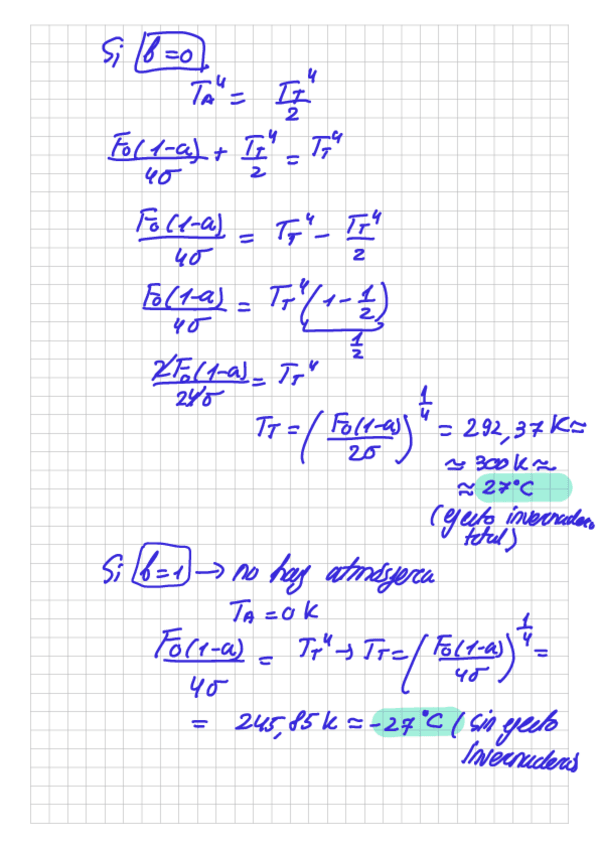 Si b=0
T_A^4 = T_T^4/2
F₀(1-a)/4σ + T_T^4/2 = T_T^4
F₀(1-a)/4σ = T_T^4 - T_T^4/2
F₀(1-a)/4σ = T_T^4 (1 - 1/2)
1/2
2F₀(1-a)/24σ = T_T^4
T_T = (F₀(1-a)/2σ)^1/4 = 292,37 K ≈
≈ 300 K ≈
≈ 27°C
(efecto invernadero
total)
Si b=1 → no hay atmósfera
T_A = 0 K
F₀(1-a)/4σ = T_T^4 → T_T = (F₀(1-a)/4σ)^1/4 =
= 245,85 K ≈ -27°C (sin efecto
invernadero)